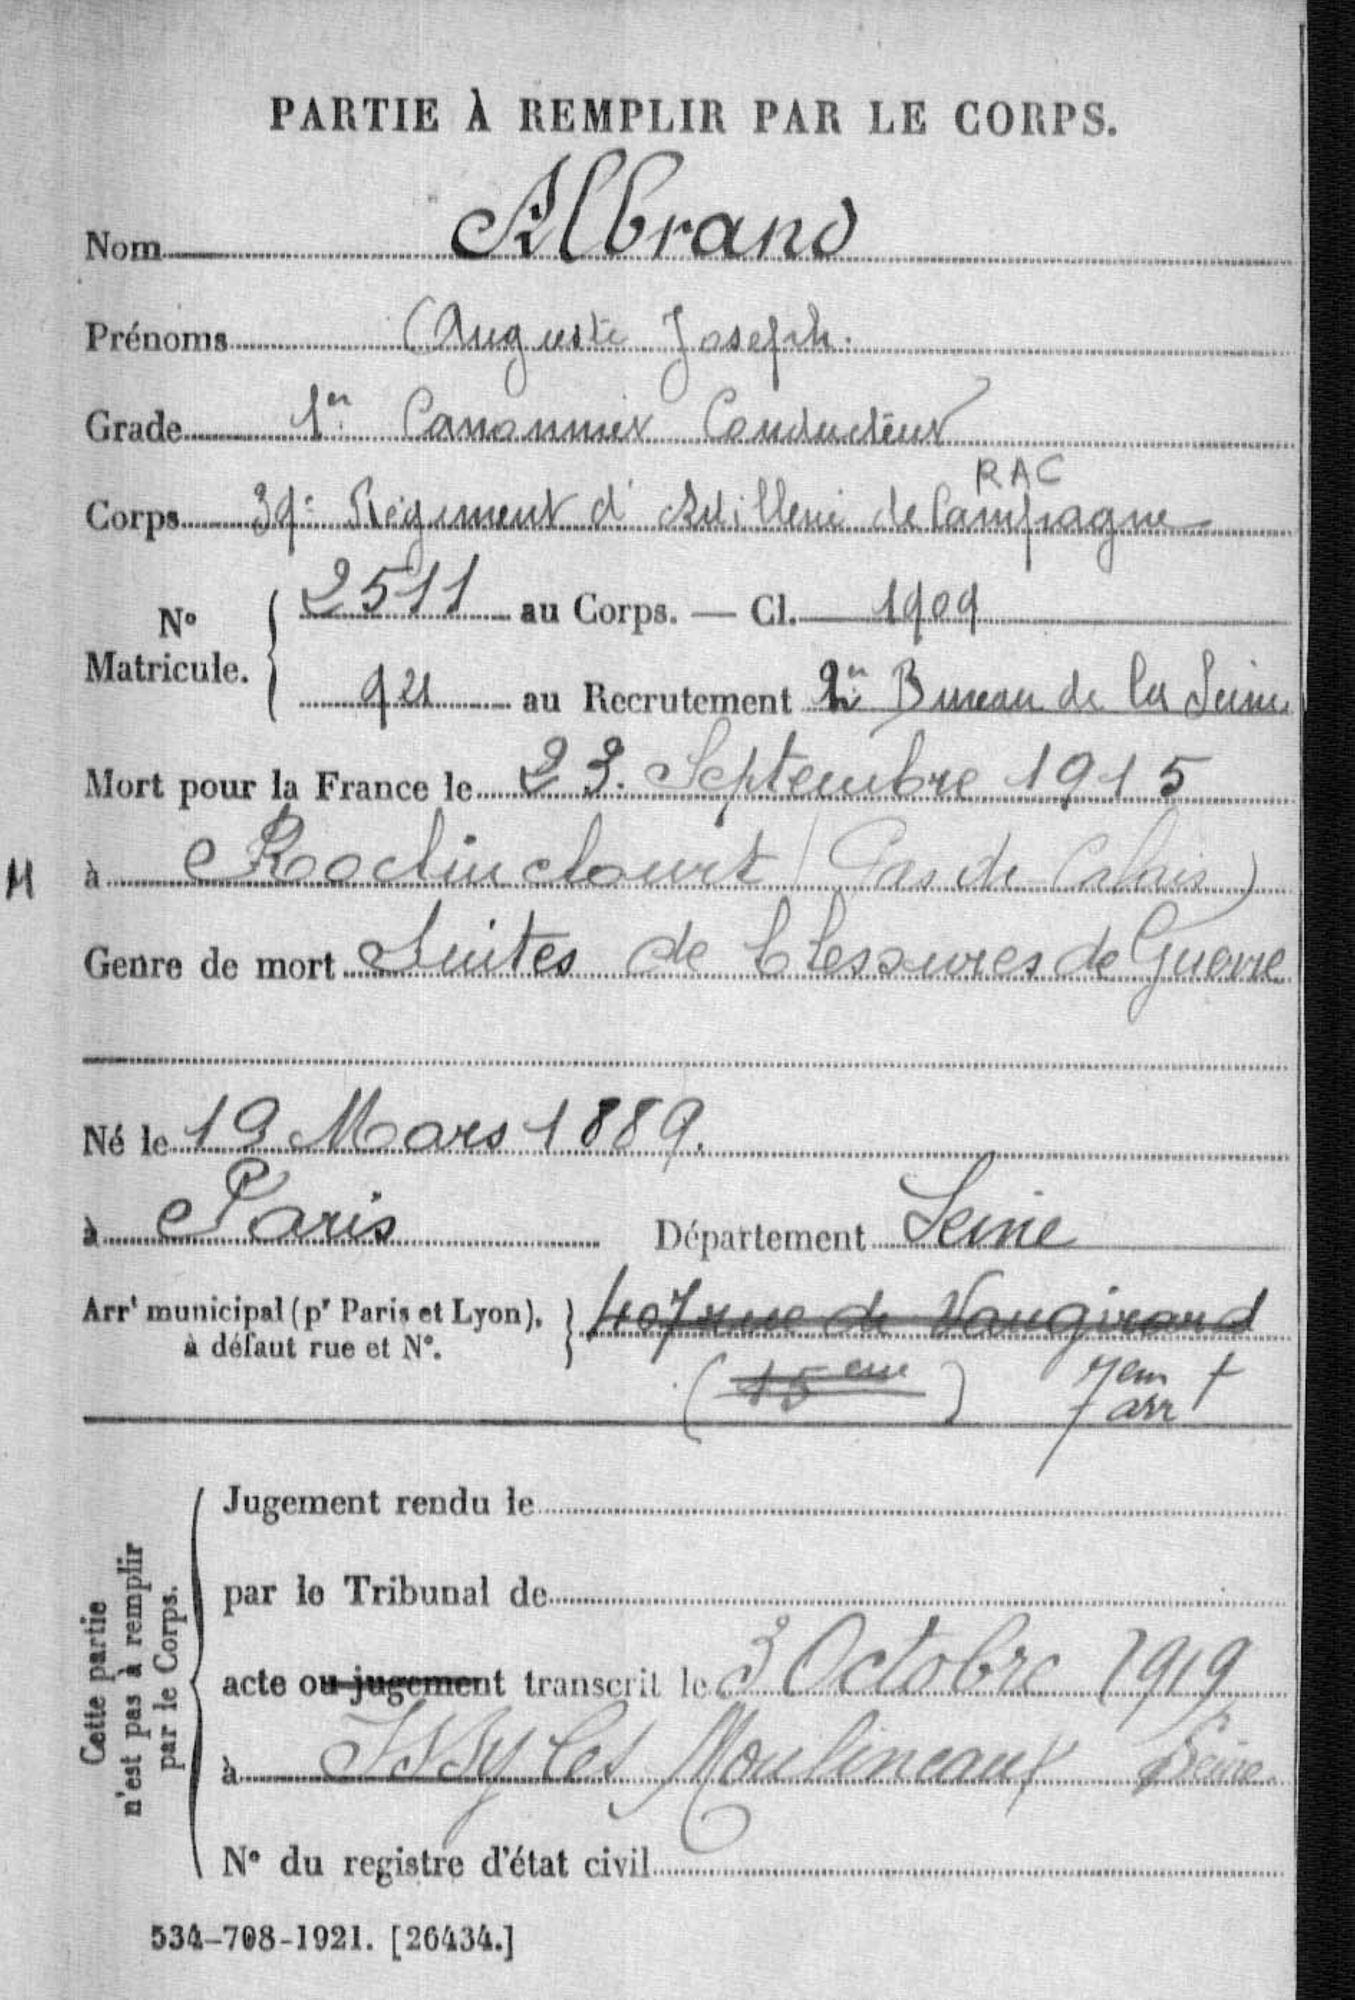 PARTIE À REMPLIR PAR LE CORPS.
Nom Albrand
Prénoms Auguste Joseph.
Grade 1er Canonnier Conducteur
RAC
Corps 39e Régiment d'Artillerie de Campagne
No Matricule. 2511 au Corps. — Cl. 1909
921 au Recrutement Bureau de la Seine
Mort pour la France le 23 Septembre 1915
H à Roclinclourt (Pas de Calais)
Genre de mort Suites de blessures de Guerre
Né le 19 Mars 1889.
à Paris Département Seine
Arrt municipal (pr Paris et Lyon), à défaut rue et No. 407 rue de Vaugirard
(15eme) 7em arrt
Cette partie n'est pas à remplir par le Corps.
Jugement rendu le
par le Tribunal de
acte ou jugement transcrit le 3 Octobre 1919
à Issy les Moulineaux Seine
No du registre d'état civil
534-708-1921. [26434.]